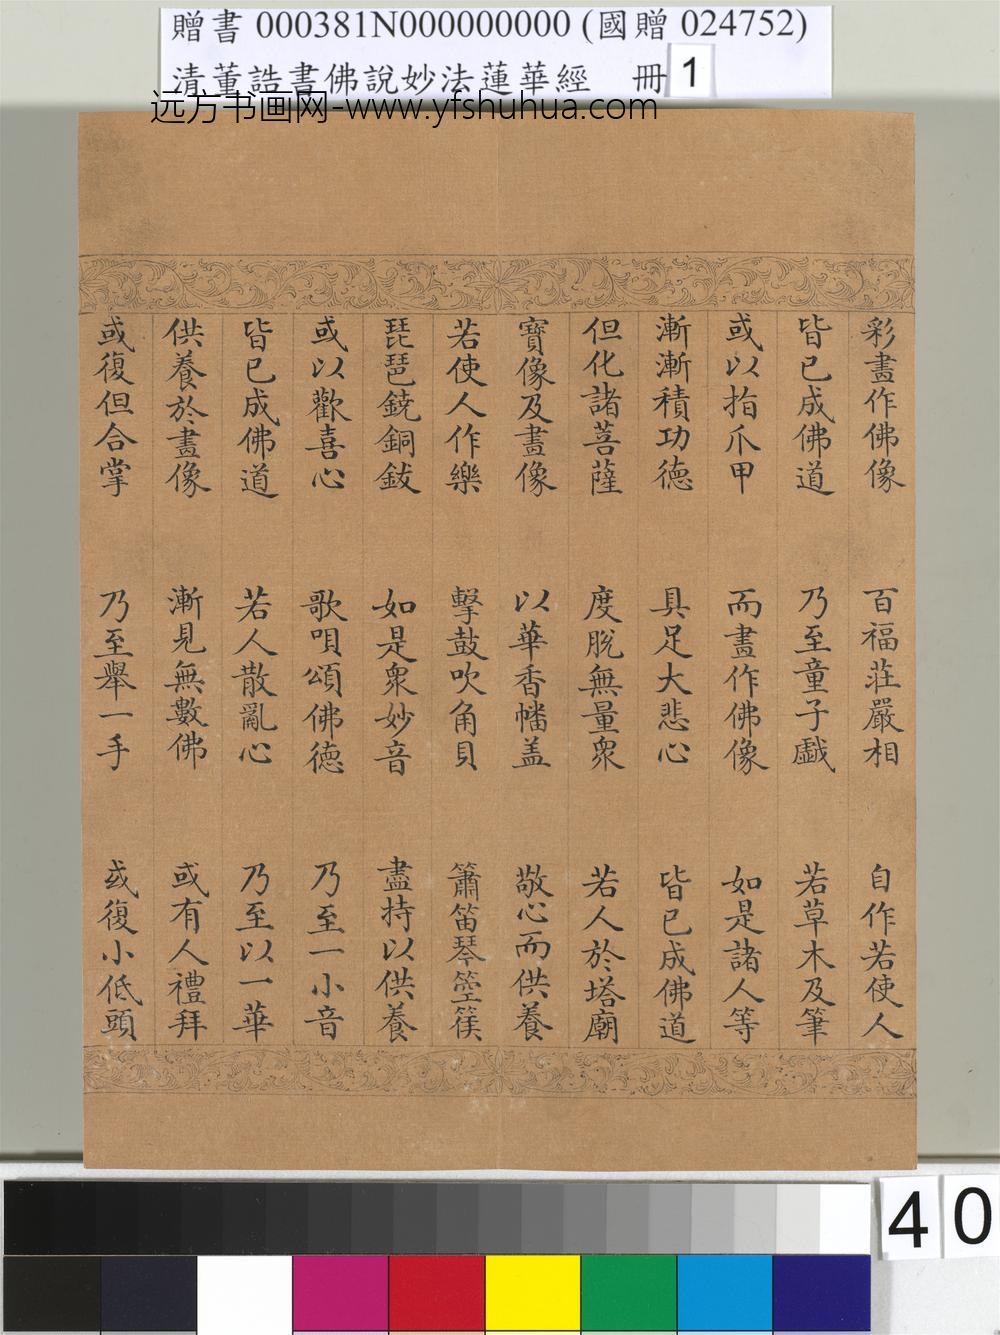 贈書 000381N000000000 (國贈 024752)
清董誥書佛說妙法蓮華經 冊 1
远方书画网-www.yfshuhua.com
彩畫作佛像 百福莊嚴相 自作若使人
皆已成佛道 乃至童子戲 若草木及筆
或以指爪甲 而畫作佛像 如是諸人等
漸漸積功德 具足大悲心 皆已成佛道
但化諸菩薩 度脫無量眾 若人於塔廟
寶像及畫像 以華香幡盖 敬心而供養
若使人作樂 擊鼓吹角貝 簫笛琴箜篌
琵琶鐃銅鈸 如是眾妙音 盡持以供養
或以歡喜心 歌唄頌佛德 乃至一小音
皆已成佛道 若人散亂心 乃至以一華
供養於畫像 漸見無數佛 或有人禮拜
或復但合掌 乃至舉一手 或復小低頭
40